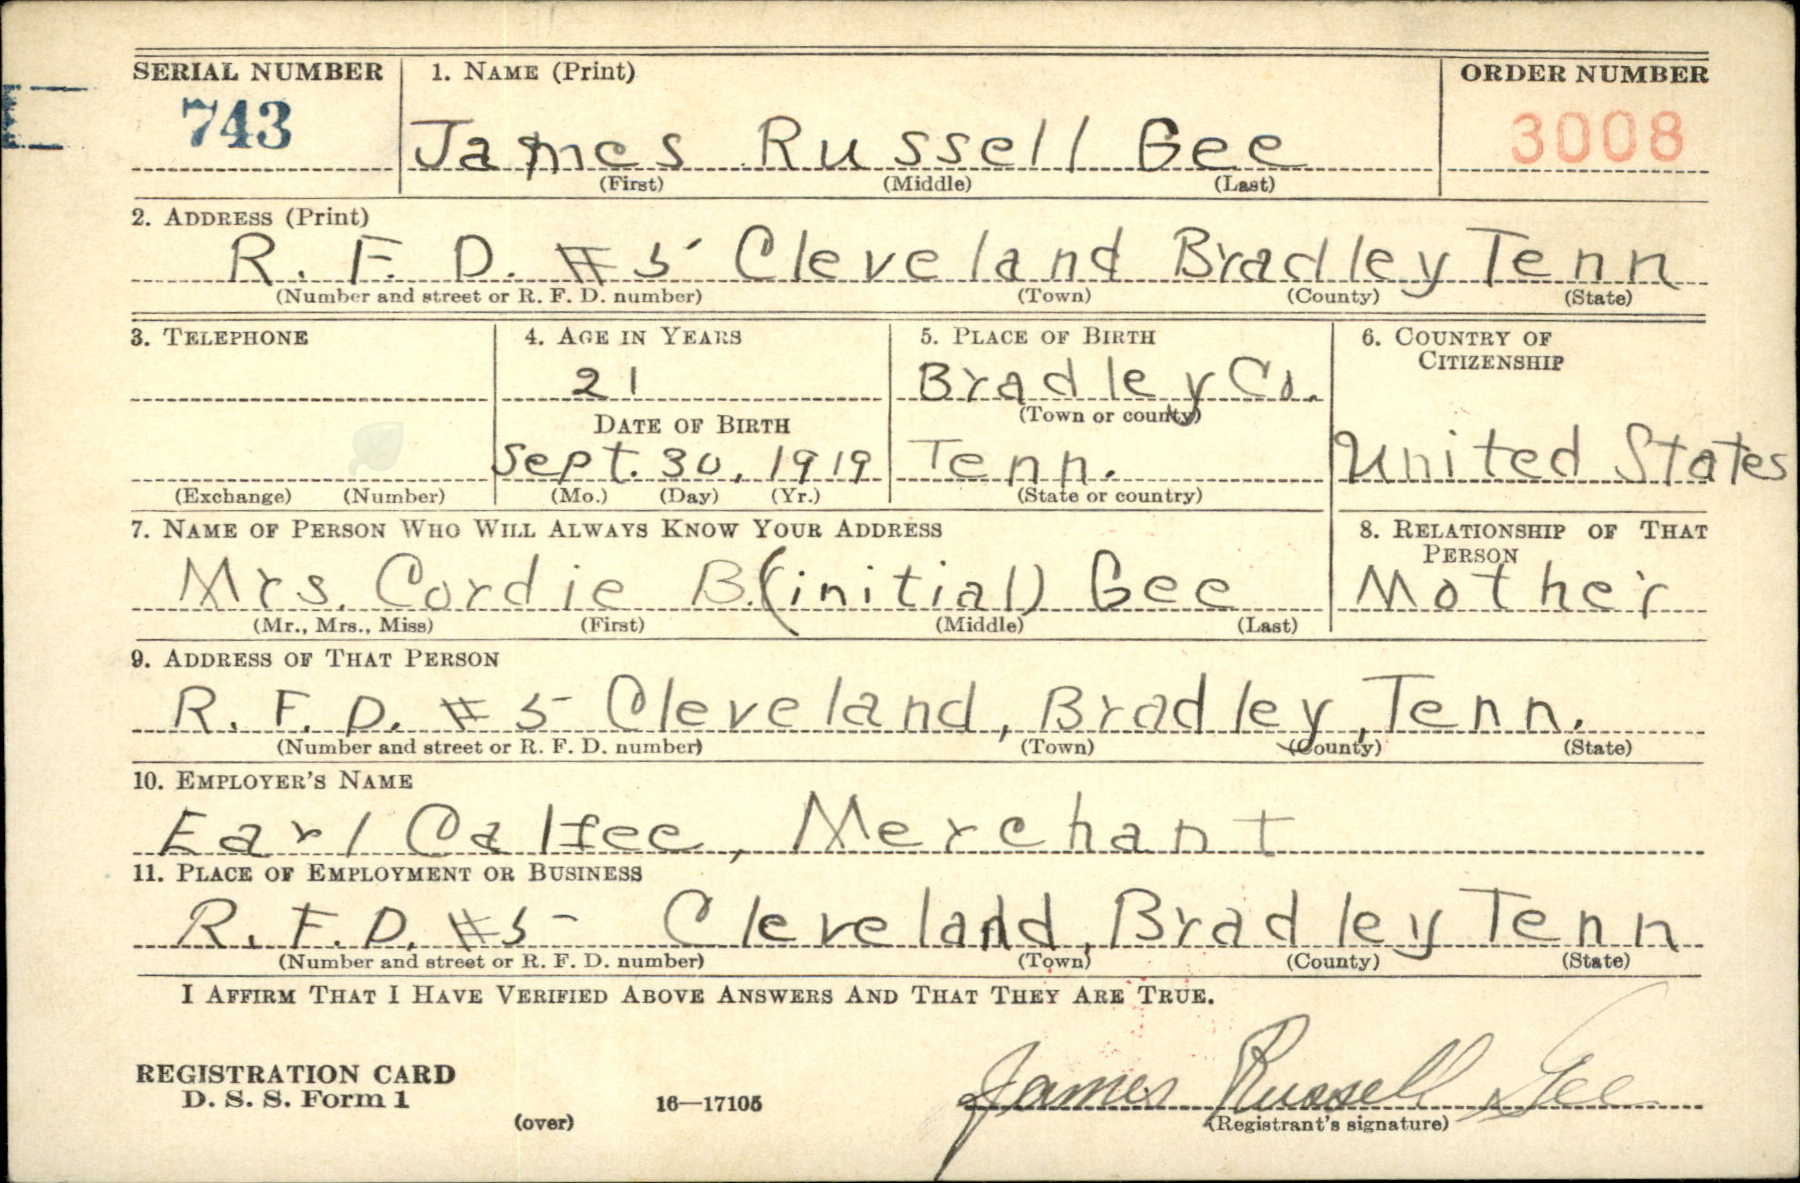 SERIAL NUMBER 1. NAME (Print) ORDER NUMBER
743 James Russell Gee 3008
(First) (Middle) (Last)
2. ADDRESS (Print)
R. F. D. #5 Cleveland Bradley Tenn
(Number and street or R. F. D. number) (Town) (County) (State)
3. TELEPHONE 4. AGE IN YEARS 5. PLACE OF BIRTH 6. COUNTRY OF CITIZENSHIP
21 Bradley Co.
DATE OF BIRTH (Town or county)
Sept. 30, 1919 Tenn. United States
(Exchange) (Number) (Mo.) (Day) (Yr.) (State or country)
7. NAME OF PERSON WHO WILL ALWAYS KNOW YOUR ADDRESS 8. RELATIONSHIP OF THAT PERSON
Mrs. Cordie B. (initial) Gee Mother
(Mr., Mrs., Miss) (First) (Middle) (Last)
9. ADDRESS OF THAT PERSON
R. F. D. #5 Cleveland, Bradley, Tenn.
(Number and street or R. F. D. number) (Town) (County) (State)
10. EMPLOYER'S NAME
Earl Calfee, Merchant
11. PLACE OF EMPLOYMENT OR BUSINESS
R. F. D. #5 Cleveland, Bradley Tenn
(Number and street or R. F. D. number) (Town) (County) (State)
I AFFIRM THAT I HAVE VERIFIED ABOVE ANSWERS AND THAT THEY ARE TRUE.
REGISTRATION CARD
D. S. S. Form 1
(over) 16—17105
James Russell Gee
(Registrant's signature)